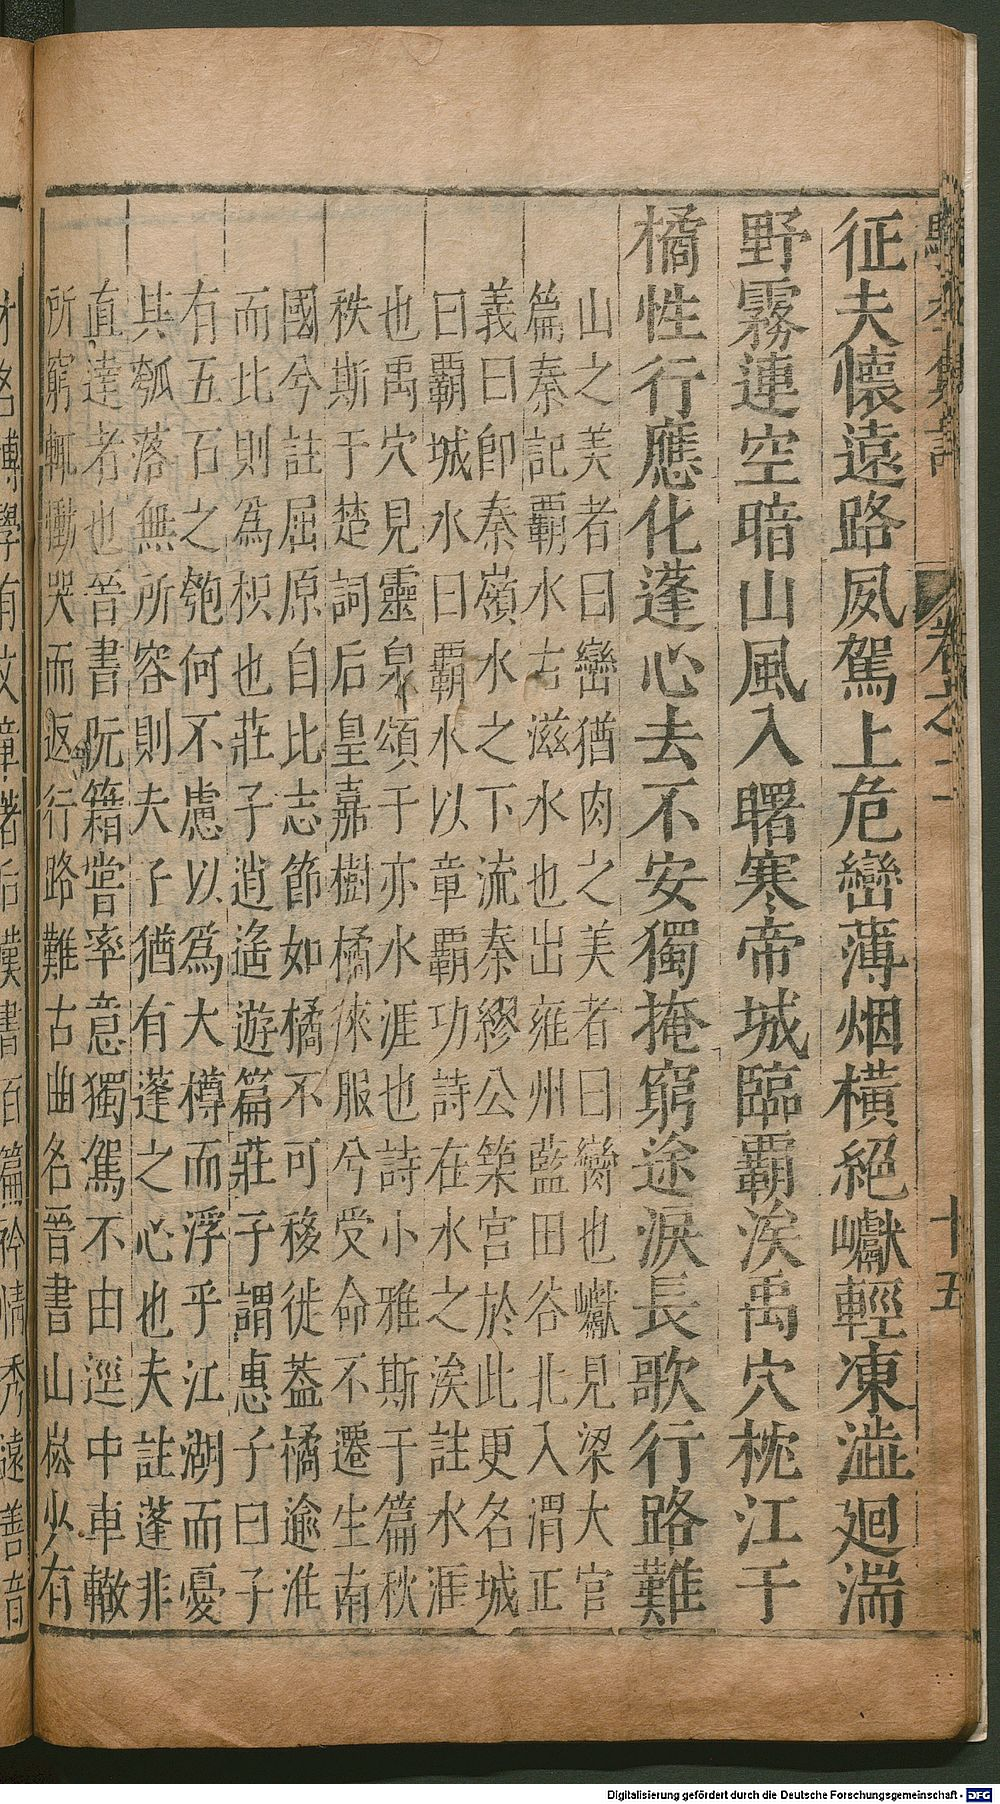 征夫懷遠路夙駕上危巒薄烟橫絕巘輕凍澁廻湍
野霧連空暗山風入曙寒帝城臨覇涘禹穴枕江干
橘性行應化蓬心去不安獨掩窮途淚長歌行路難
山之美者曰巒猶肉之美者曰臠也巘見梁大官
篇秦記覇水古滋水也出雍州藍田谷北入渭正
義曰卽秦嶺水之下流秦繆公築宮於此更名城
曰覇城水曰覇水以章覇功詩在水之涘註水涯
也禹穴見靈泉頌于亦水涯也詩小雅斯于篇秋
秩斯于楚詞后皇嘉樹橘徠服兮受命不遷生南
國兮註屈原自比志節如橘不可移徙葢橘逾淮
而比則爲枳也莊子逍遙遊篇莊子謂惠子曰子
有五石之匏何不慮以爲大樽而浮乎江湖而憂
其瓠落無所容則夫子猶有蓬之心也夫註蓬非
直達者也晉書阮籍嘗率意獨駕不由逕中車轍
所窮輒慟哭而返行路難古曲名晉書山崧少有
才名博學有文章著后漢書百篇衿情秀遠善音
卷之二
十五
Digitalisierung gefördert durch die Deutsche Forschungsgemeinschaft - DFG